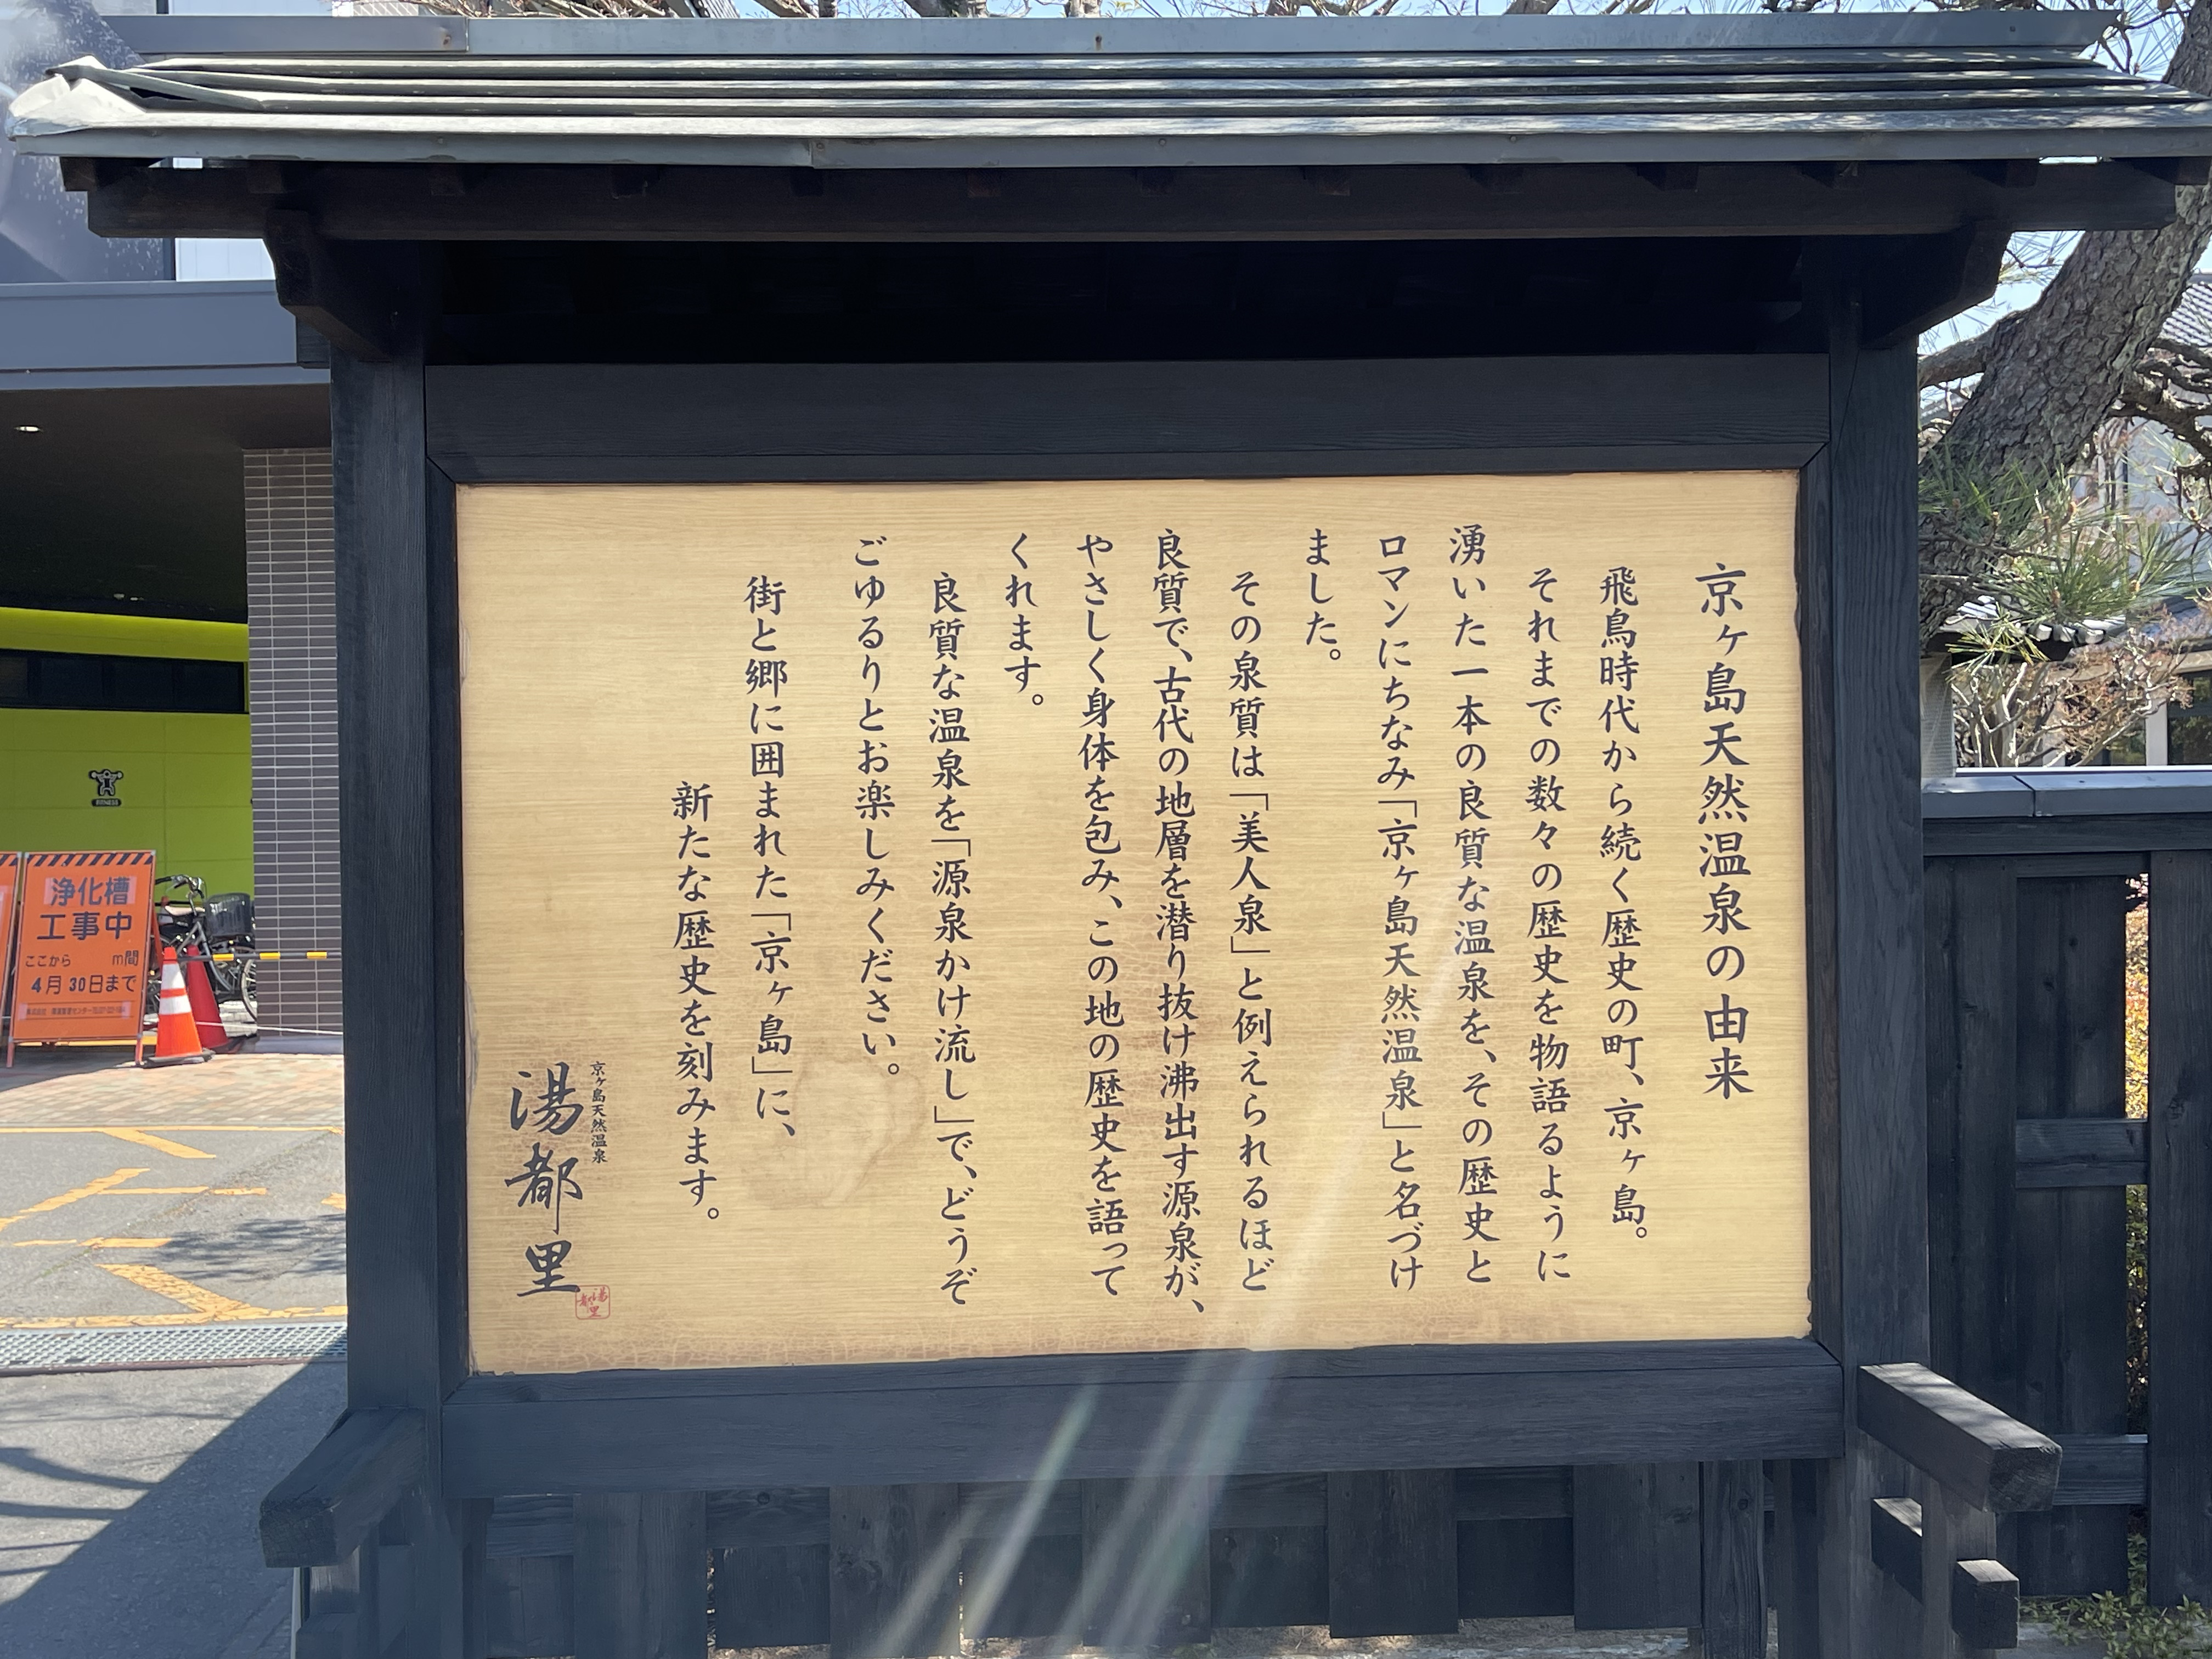 京ヶ島天然温泉の由来
飛鳥時代から続く歴史の町、京ヶ島。
それまでの数々の歴史を物語るように
湧いた一本の良質な温泉を、その歴史と
ロマンにちなみ「京ヶ島天然温泉」と名づけ
ました。
その泉質は「美人泉」と例えられるほど
良質で、古代の地層を潜り抜け沸出す源泉が、
やさしく身体を包み、この地の歴史を語って
くれます。
良質な温泉を「源泉かけ流し」で、どうぞ
ごゆるりとお楽しみください。
街と郷に囲まれた「京ヶ島」に、
新たな歴史を刻みます。
京ヶ島天然温泉
湯都里
湯都里
浄化槽
工事中
ここから m間
4月30日まで
FITNESS